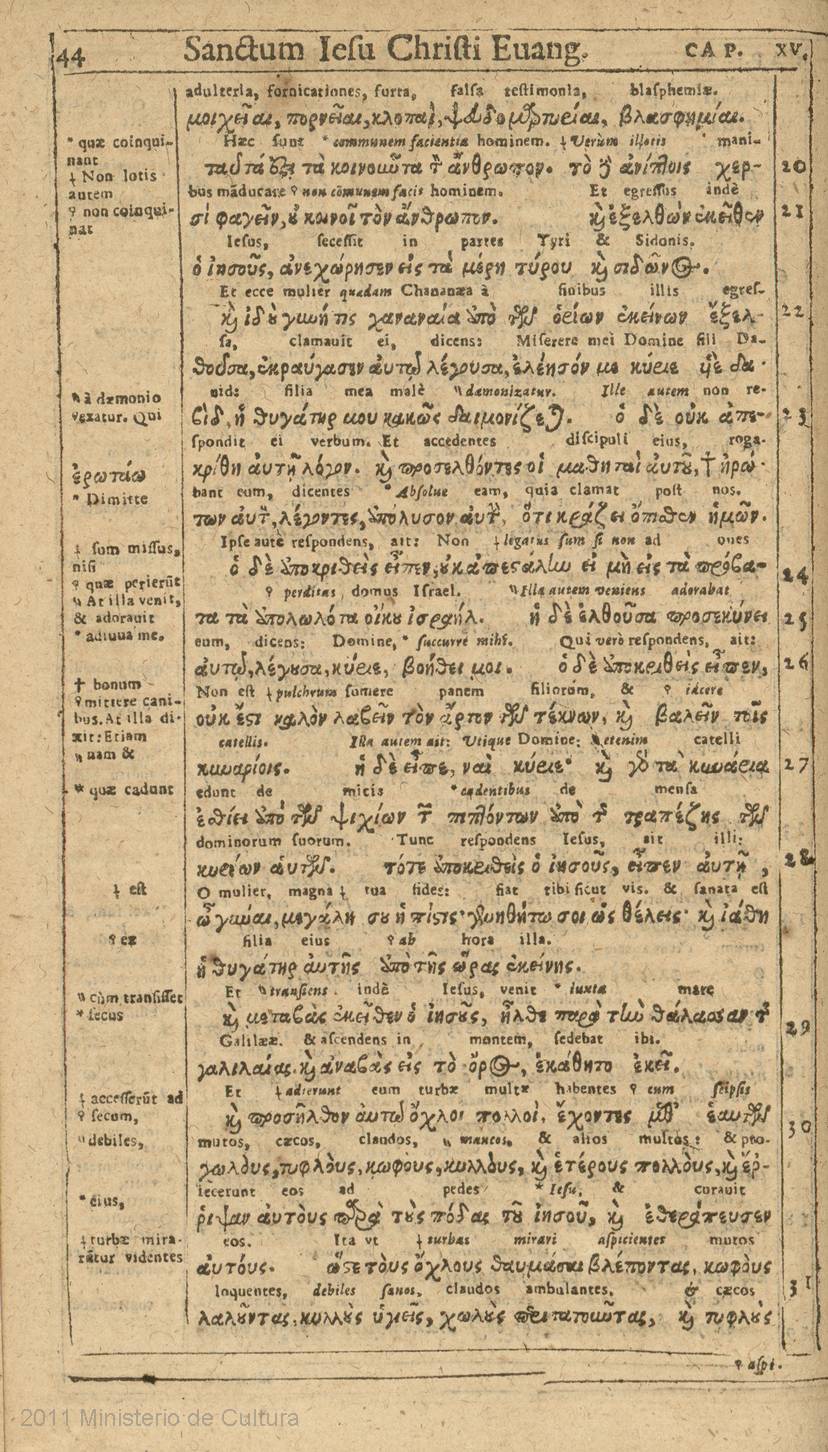 44 Sanctum Iesu Christi Euang. CAP. XV.
adulteria, fornicationes, furta, falsa testimonia, blasphemiæ.
μοιχεῖαι, πορνεῖαι, κλοπαὶ, ψευδομαρτυρίαι, βλασφημίαι.
Hæc sunt * communem facientia hominem. ɬ Verùm illotis mani-
ταῦτά ἐστι τὰ κοινοῦντα τ ἄνθρωπον. τὸ δ ἀνίπτοις χερ- 20
bus māducare ♀ non cōmunem facit hominem. Et egressus indè
σὶ φαγεῖν, ȣ κοινοῖ τὸν ἄνθρωπον. κ ἐξελθὼν ἐκεῖθεν 21
Iesus, secessit in partes Tyri & Sidonis.
ὁ ἰησοῦς, ἀνεχώρησεν εἰς τὰ μέρη τύρου κ σιδῶνος.
Et ecce mulier quædam Chananæa à finibus illis egres-
κ ἰδȣ γυνή τις χαναναία ἀπὸ τῶν ὁρίων ἐκείνων ἐξελ- 22
sa, clamauit ei, dicens: Miserere mei Domine fili Da-
θοῦσα, ἐκραύγασεν αὐτῷ λέγουσα, ἐλέησόν με κύριε υἱὲ δα-
uid: filia mea malè daemonizatur. Ille autem non re-
βίδ, ἡ θυγάτηρ μου κακῶς δαιμονίζεται. ὁ δὲ οὐκ ἀπε- 23
spondit ei verbum. Et accedentes discipuli eius, roga-
κρίθη αὐτῇ λόγον. κ προσελθόντες οἱ μαθηταὶ αὐτȣ, † ἠρώ-
bant eum, dicentes * Absolue eam, quia clamat post nos.
των αὐτ, λέγοντες, ἀπόλυσον αὐτ, ὅτι κράζει ὄπισθεν ἡμῶν.
Ipse autē respondens, ait: Non ɬ legatus sum si non ad oues
ὁ δὲ ἀποκριθεὶς εἶπεν, ȣκ ἀπεστάλην εἰ μὴ εἰς τὰ πρόβα- 24
♀ perditas domus Israel. Illa autem veniens adorabat
τα τὰ ἀπολωλότα οἴκȣ ἰσραήλ. ἡ δὲ ἐλθοῦσα προσεκύνει 25
eum, dicens: Domine, * succurre mihi. Qui verò respondens, ait:
αὐτῷ, λέγȣσα, κύριε, βοήθει μοι. ὁ δὲ ἀποκριθεὶς εἶπεν, 26
Non est ɬ pulchrum sumere panem filiorum, & ♀ iacere
οὐκ ἔστι καλὸν λαβεῖν τὸν ἄρτον τῶν τέκνων, κ βαλεῖν τοῖς
catellis. Illa autem ait: Vtique Domine: etenim catelli
κυναρίοις. ἡ δὲ εἶπε, ναὶ κύριε· κ γὸ τὰ κυνάρια 27
edunt de micis * cadentibus de mensa
ἐσθίει ἀπὸ τῶν ψιχίων τ πιπτόντων ἀπὸ τ τραπέζης τῶν
dominorum suorum. Tunc respondens Iesus, ait illi:
κυρίων αὐτῶν. τότε ἀποκριθεὶς ὁ ἰησοῦς, εἶπεν αὐτῇ, 28
O mulier, magna ɬ tua fides: fiat tibi sicut vis. & sanata est
ὦ γύναι, μεγάλη σȣ ἡ πίστις· γενηθήτω σοι ὡς θέλεις· κ ἰάθη
filia eius ♀ ab hora illa.
ἡ θυγάτηρ αὐτῆς ἀπὸ τῆς ὥρας ἐκείνης.
Et transiens indè Iesus, venit * iuxta mare
κ μεταβὰς ἐκεῖθεν ὁ ἰησοῦς, ἦλθε παρὰ τὴν θάλασσαν τ 29
Galilææ. & ascendens in montem, sedebat ibi.
γαλιλαίας. κ ἀναβὰς εἰς τὸ ὄρος, ἐκάθητο ἐκεῖ.
Et ɬ adierunt eum turbæ multæ habentes ♀ cum seipsis
κ προσῆλθον αὐτῷ ὄχλοι πολλοὶ, ἔχοντες μεθ' ἑαυτῶν 30
mutos, cæcos, claudos, mancos, & alios multos: & pro-
χωλους, τυφλοὺς, κωφους, κυλλους, κ ἑτέρους πολλοὺς, κ ἔρ-
iecerunt eos ad pedes * Iesu, & curauit
ριψαν αὐτοὺς παρὰ τȣς πόδας τȣ ἰησοῦ, κ ἐθεράπευσεν
eos. Ita vt ɬ turbas mirari aspicientes mutos
αὐτούς. ὥστε τοὺς ὄχλους θαυμάσαι βλέποντας, κωφοὺς
loquentes, debiles sanos, claudos ambulantes, & cæcos
λαλοῦντας, κυλλȣς ὑγιεῖς, χωλȣς περιπατοῦντας, κ τυφλȣς 31
♀ aspi.
* quæ coinqui-
nant
ɬ Non lotis
autem
♀ non coinqui-
nat
à dæmonio
vexatur. Qui
ἐρωτάω
* Dimitte
ɬ sum missus,
nisi
♀ quæ perierūt
At illa venit,
& adorauit
* adiuua me.
† bonum
♀ mittere cani-
bus. At illa di-
xit: Etiam
nam &
* quæ cadunt
ɬ est
♀ ex
cùm transisset
* secus
ɬ accesserūt ad
♀ secum,
debiles,
* eius,
ɬ turbæ mira-
rētur videntes
2011 Ministerio de Cultura